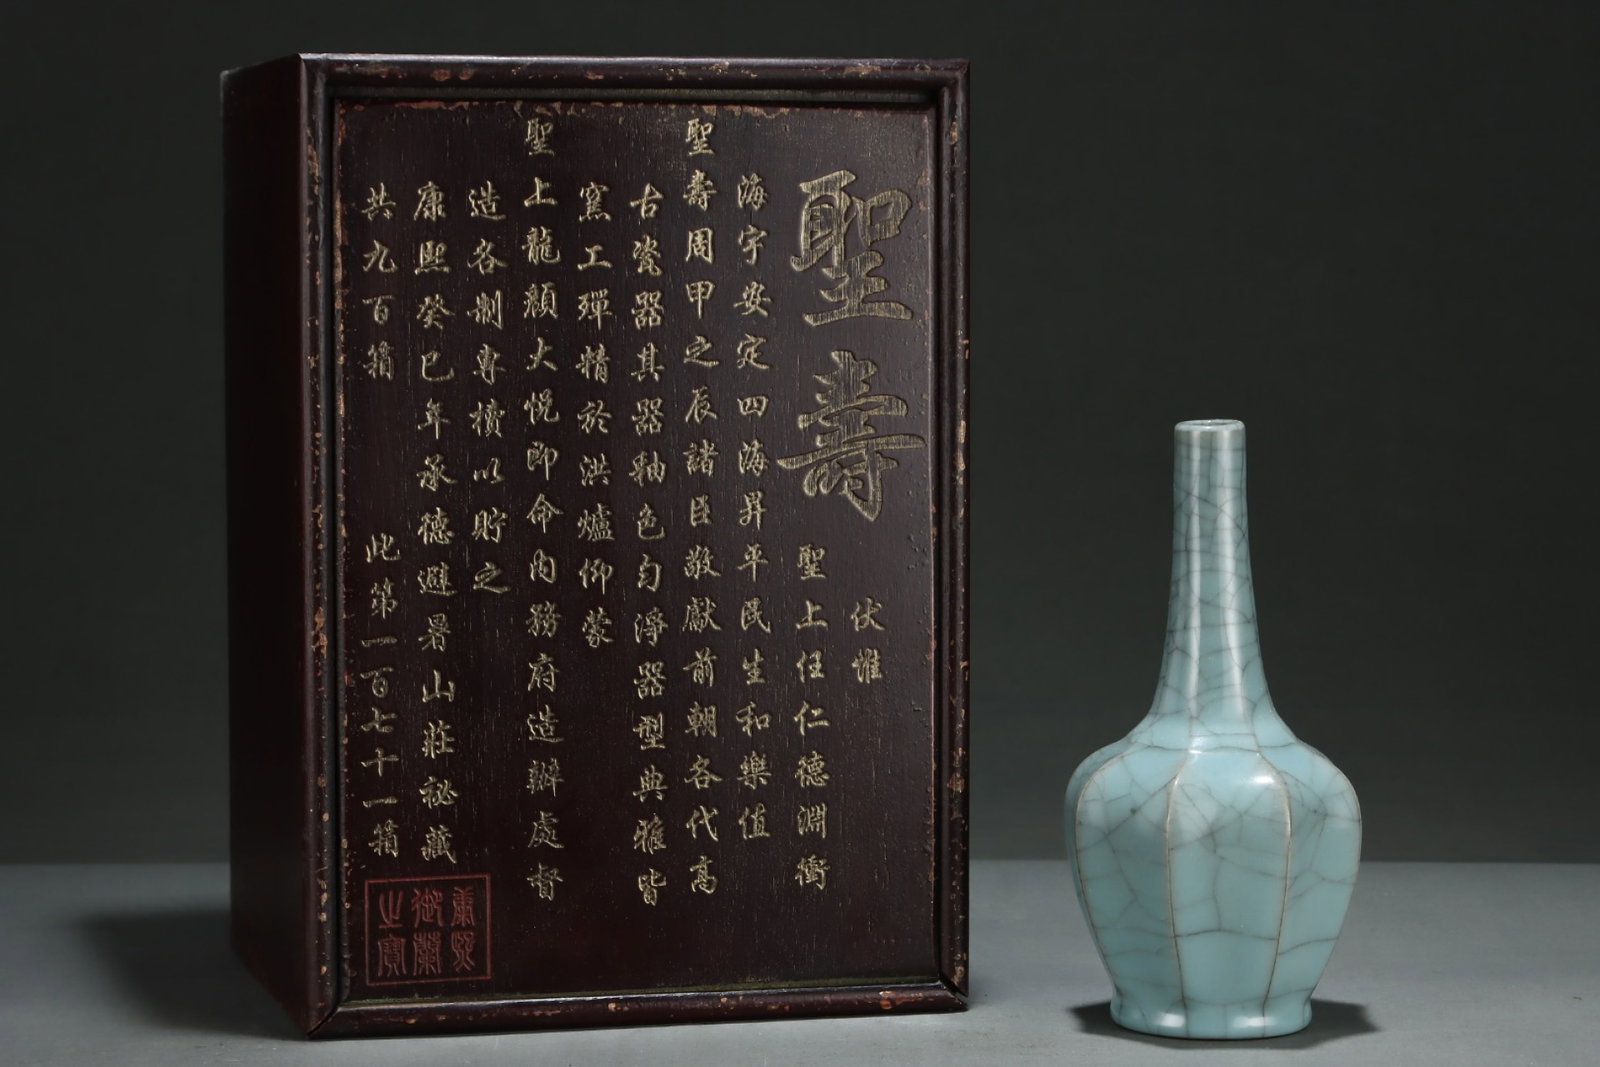 聖壽
伏惟
聖上任仁德淵衝
海宇安定四海昇平民生和樂值
聖壽周甲之辰諸臣敬獻前朝各代高
古瓷器其器釉色勻淨器型典雅皆
窯工殫精於洪爐仰蒙
聖上龍顏大悅即命內務府造辦處督
造各制專櫝以貯之
康熙癸巳年承德避暑山莊秘藏
共九百箱 此第一百七十一箱
康熙
御覽
之寶